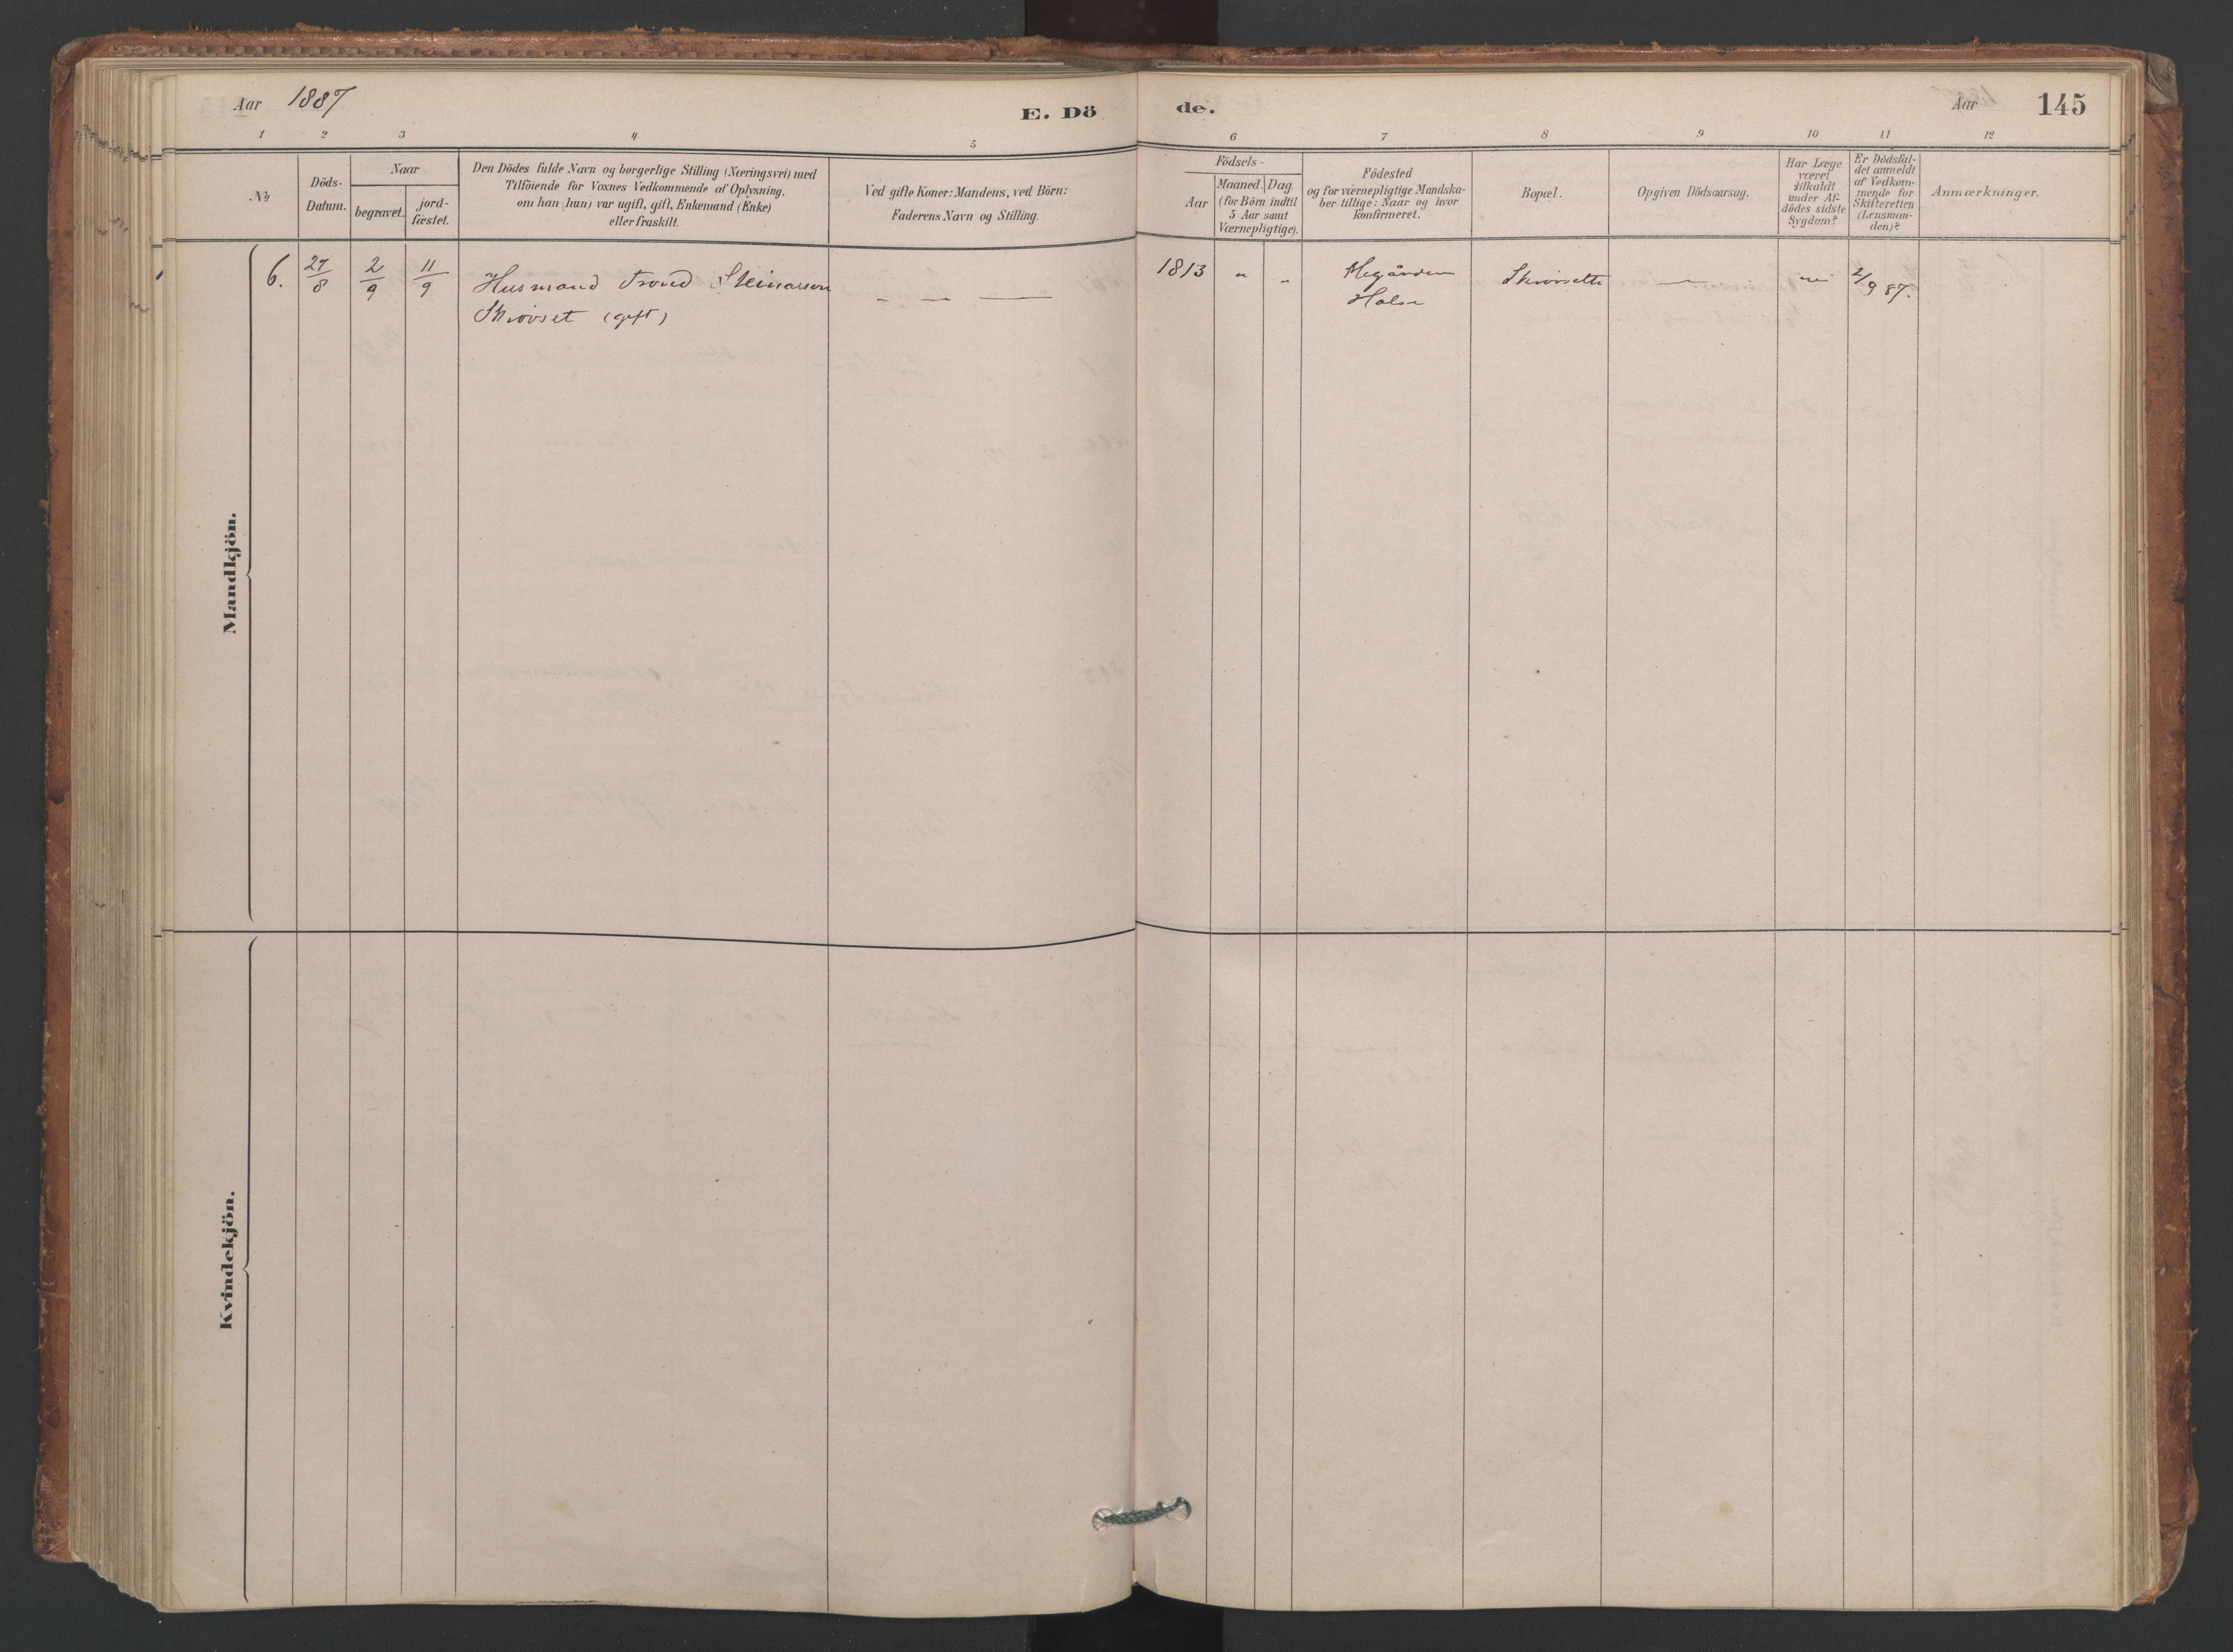 Aar 1887
E. Dö
de.
Aar
145
1 2 3 4 5 6 7 8 9 10 11 12
No
Döds-
Datum.
Naar
begravet.
jord-
fæstet.
Den Dödes fulde Navn og borgerlige Stilling (Næringsvei) med
Tilföiende for Voxnes Vedkommende af Oplysning,
om han (hun) var ugift, gift, Enkemand (Enke)
eller fraskilt.
Ved gifte Koner: Mandens, ved Börn:
Faderens Navn og Stilling.
Födsels-
Aar
Maaned. Dag.
(for Börn indtil
5 Aar samt
Værnepligtige).
Födested
og for værnepligtige Mandska-
ber tillige: Naar og hvor
konfirmeret.
Bopæl.
Opgiven Dödsaarsag.
Har Læge
været
tilkaldt
under Af-
dödes sidste
Sygdom?
Er Dödsfal-
det anmeldt
af Vedkom-
mende for
Skifteretten
(Lensman-
den)?
Anmærkninger.
Mandkjön.
6. 27/8 2/9 11/9 Husmand Trond
(gift)
1813 " "
Halsa
— nei 2/9 87.
Kvindekjön.